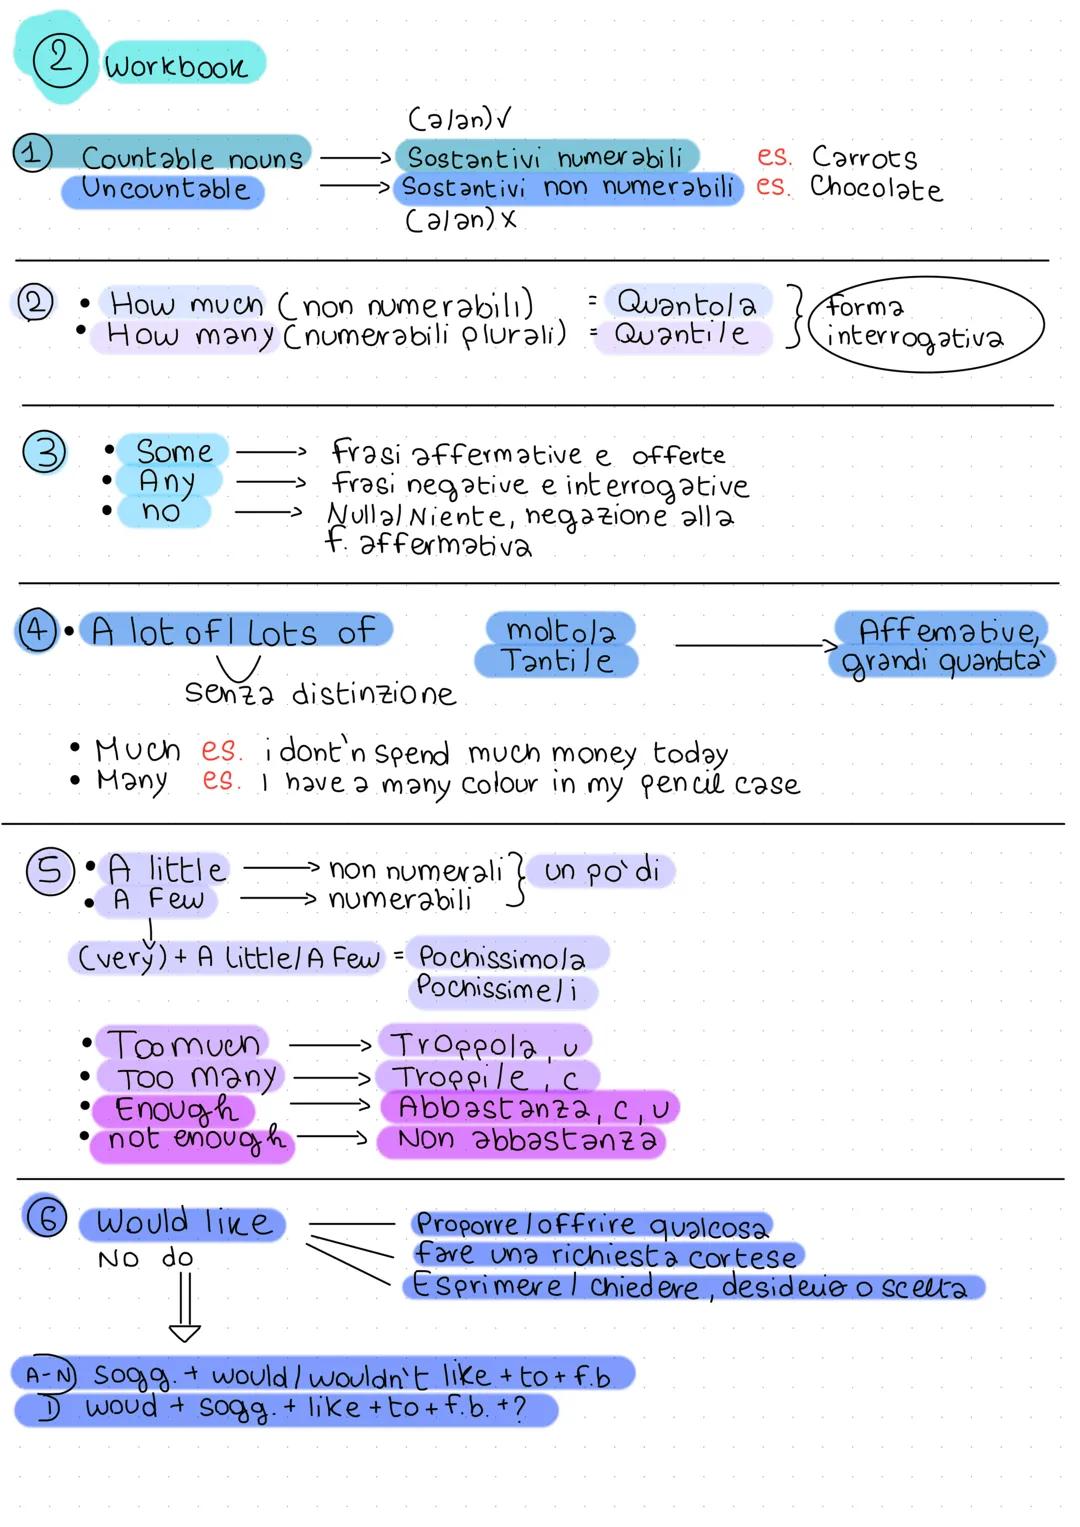 2 Workbook
(a/an)✓
1 Countable nouns → Sostantivi numerabili es. Carrots
Uncountable → Sostantivi non numerabili es. Chocolate
(a/an) X
2 • How much (non numerabili) = Quanto/a } forma
• How many (numerabili plurali) = Quanti/e interrogativa
3 • Some → Frasi affermative e offerte
• Any → frasi negative e interrogative
• no → Nulla/Niente, negazione alla
f. affermativa
4 • A lot of/ Lots of molto/a → Affemative,
Tanti/e grandi quantita'
Senza distinzione
• Much es. i dont'n spend much money today
• Many es. I have a many colour in my pencil case
5 • A little → non numerali } un po' di
• A Few → numerabili
(very) + A little/A Few = Pochissimo/a
Pochissime/i
• Too much → Troppo/a, u
• Too many → Troppi/e, c
• Enough → Abbastanza, c, u
• not enough → Non abbastanza
6 Would like Proporre/offrire qualcosa
NO do fare una richiesta cortese
Esprimere/ chiedere, desiderio o scelta
A-N) sogg. + would/wouldn't like + to + f.b
I) woud + sogg. + like + to + f.b. + ?